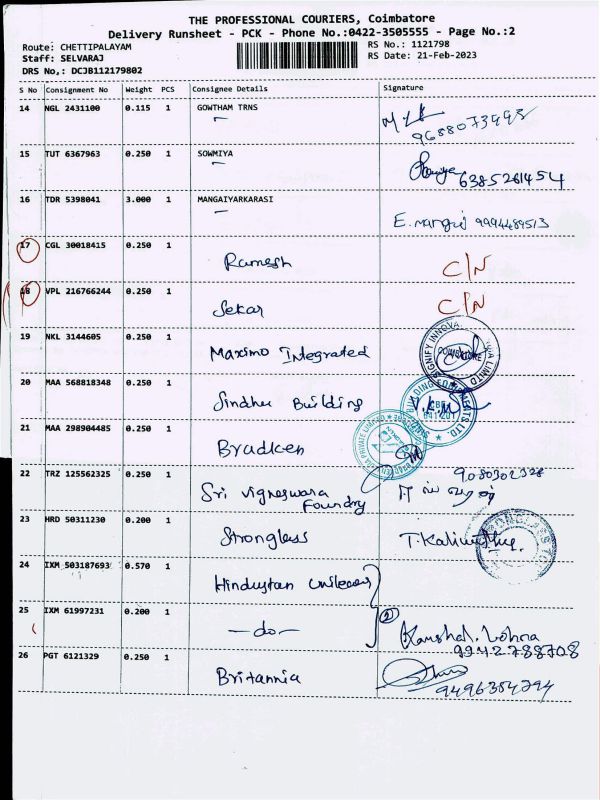 THE PROFESSIONAL COURIERS, Coimbatore
Delivery Runsheet - PCK - Phone No.:0422-3505555 - Page No.:2
Route: CHETTIPALAYAM RS No.: 1121798
Staff: SELVARAJ RS Date: 21-Feb-2023
DRS No,: DCJB112179802
S No Consignment No Weight PCS Consignee Details Signature
14 NGL 2431100 0.115 1 GOWTHAM TRNS
15 TUT 6367963 0.250 1 SOWMIYA 6385261454
16 TDR 5398041 3.000 1 MANGAIYARKARASI E. Mangai 9994489513
17 CGL 30018415 0.250 1 Ramesh C/N
18 VPL 216766244 0.250 1 Sekar C/N
19 NKL 3144605 0.250 1 Maximo Integrated SIGNIFY INNOVA COIMBATORE
20 MAA 568818348 0.250 1 Sindhu Building V.K.M BUILDING CBE 641201 LTD
21 MAA 298904485 0.250 1 Bradken PRIVATE LIMITED
22 TRZ 125562325 0.250 1 Sri Vigneswara Foundry 9080302328
23 HRD 50311230 0.200 1 Stronglass
24 IXM 503187693 0.570 1 Hindustan Unilever
25 IXM 61997231 0.200 1 -do- 2 Kaushal. Lohra
9942788708
26 PGT 6121329 0.250 1 Britannia
9496354794